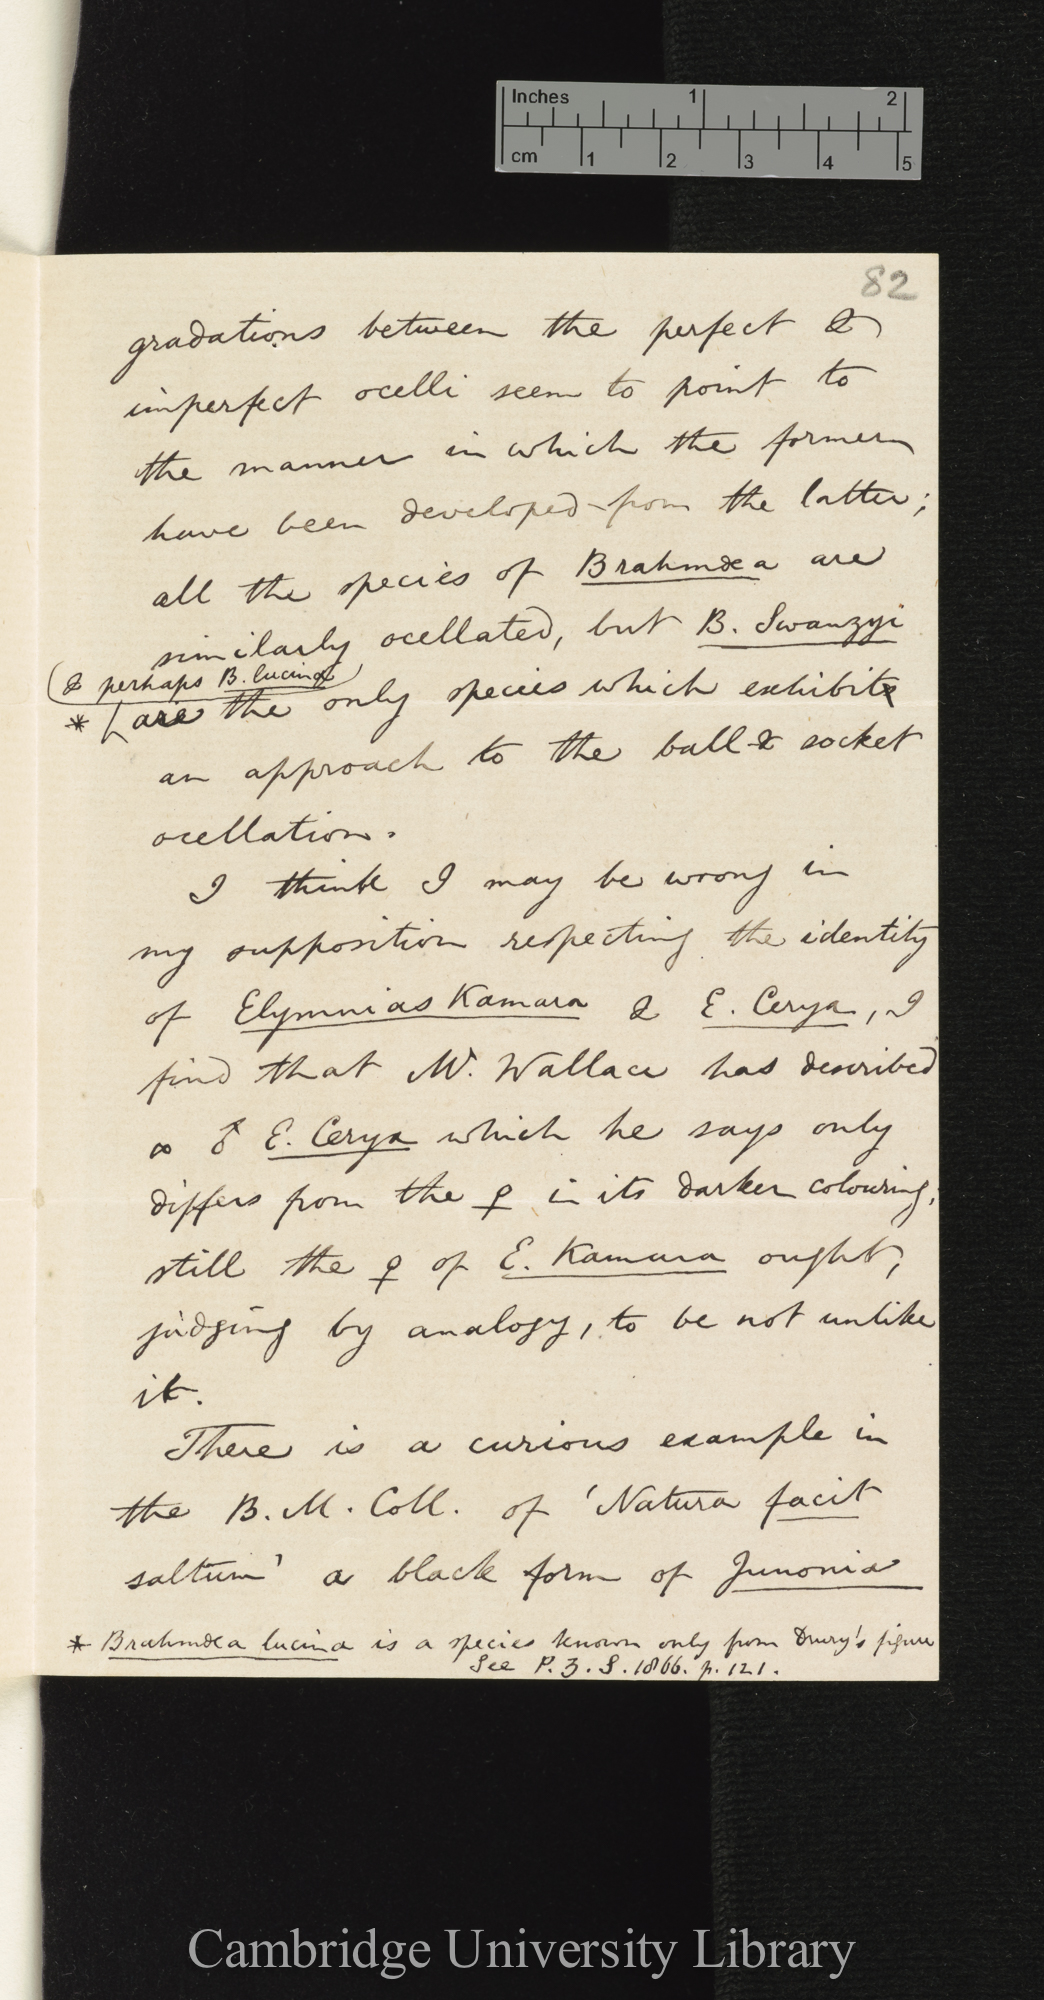 Inches 1 2
cm 1 2 3 4 5
82
gradations between the perfect &
imperfect ocelli seem to point to
the manner in which the former
have been developed from the latter;
all the species of Brahmæa are
similarly ocellated, but B. Swanzyi
(& perhaps B. lucina)
* are the only species which exhibit
an approach to the ball & socket
ocellation.
I think I may be wrong in
my supposition respecting the identity
of Elymnias Kamara & E. Cerya, I
find that Mr. Wallace has described
a ♂ E. Cerya which he says only
differs from the ♀ in its darker colouring;
still the ♀ of E. Kamara ought,
judging by analogy, to be not unlike
it.
There is a curious example in
the B. M. Coll. of 'Natura facit
saltum' a black form of Junonia
* Brahmæa lucina is a species known only from Drury's figure
See P. Z. S. 1866. p. 121.
Cambridge University Library